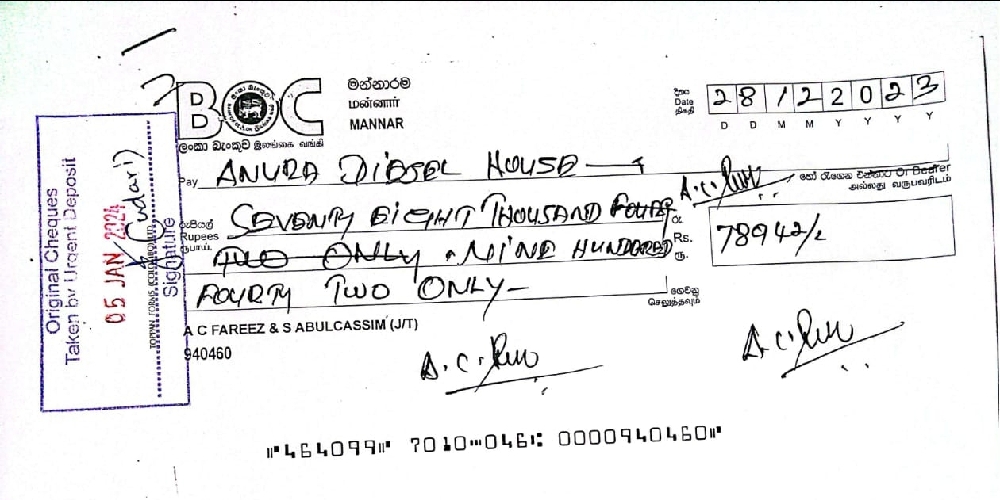 BOC
මන්නාරම
மன்னார்
MANNAR
ලංකා බැංකුව இலங்கை வங்கி
දිනය
Date
திகதி
28 12 2023
D D M M Y Y Y Y
Pay ANURA DIESEL HOUSE
හෝ රැගෙන එන්නාට Or Bearer
அல்லது வருபவரிடம்
රුපියල්
Rupees
ரூபாய்
SEVENTY EIGHT THOUSAND FOURTY
TWO ONLY NINE HUNDERED
FOURTY TWO ONLY-
රු.
Rs.
ரூ.
78942/-
ගෙවනු
செலுத்தவும்
A C FAREEZ & S ABULCASSIM (J/T)
940460
Original Cheques
Taken by Urgent Deposit
05 JAN 2024
Signature
TOPPAN FORMS (COLOMBO) LIMITED
⑈464099⑈ 7010⑉046⑆ 0000940460⑈